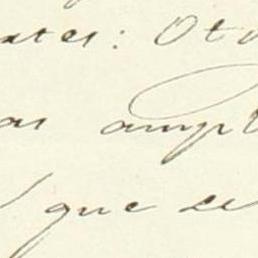 ates: Ot
as ampl
que se